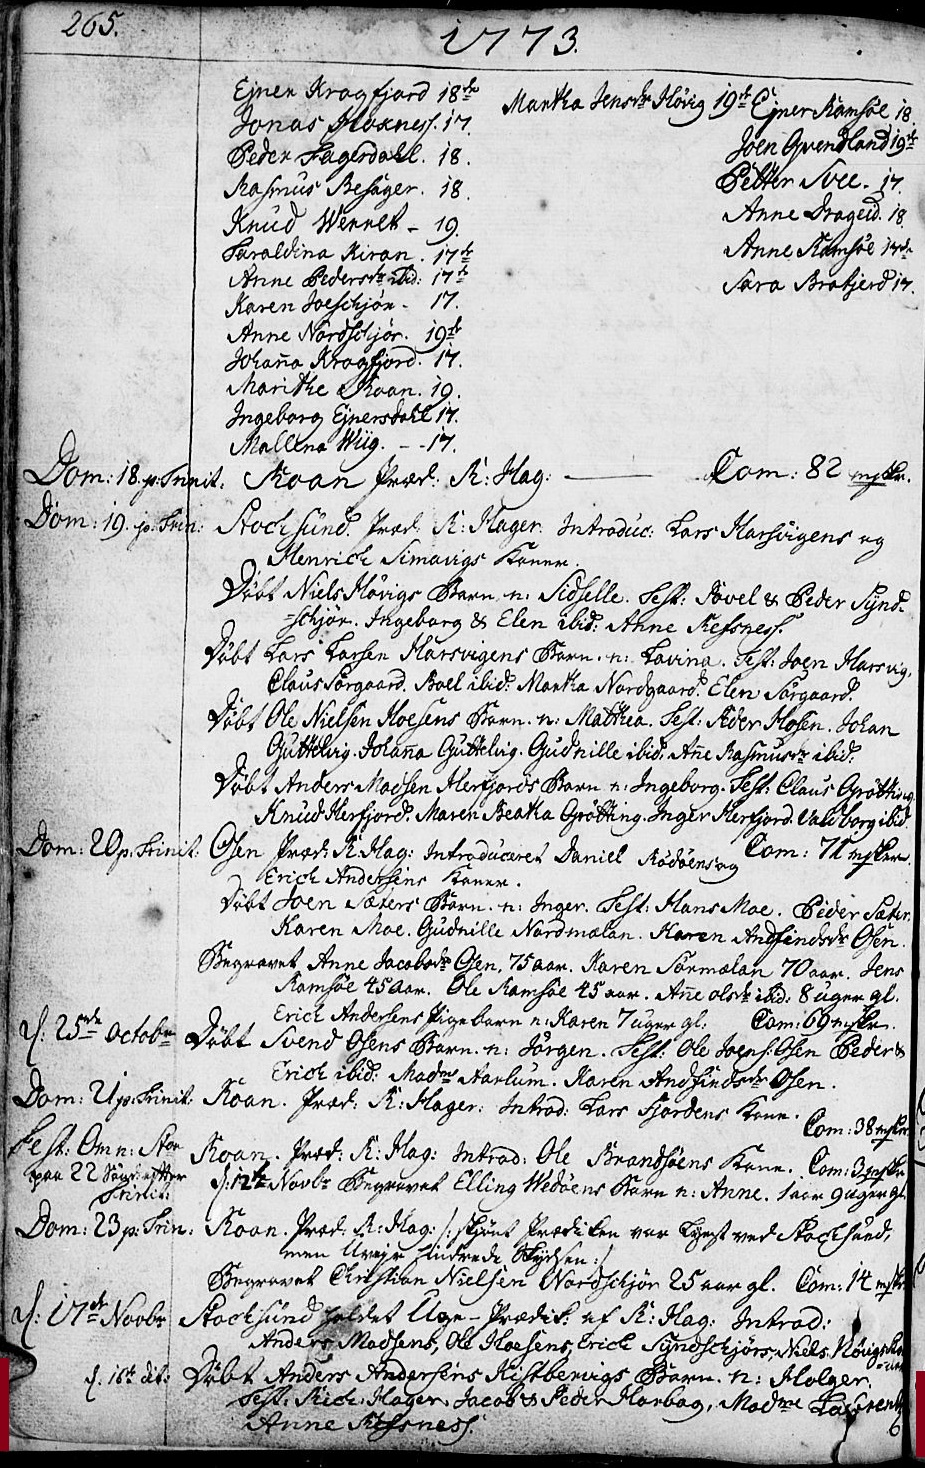 265.
1773.
Ejner Kragfjord 18de
Jonas Hoxness. 17.
Peder Fagerdahl. 18.
Rasmus Besager. 18.
Knud Werret - 19.
Saraldina Kiran. 17de
Anne Pedersdr ibid: 17de
Karen Joeschjør - 17.
Anne Nordschjør. 19de
Johanna Kragfjord. 17.
Marithe Roan. 19.
Ingeborg Ejnersdahl 17.
Mallena Wiig. - - 17.
Martha Jensdr Høvig 19de
Ejner Ramsøe 18.
Joen Qvendland 19de
Petter Svee. 17.
Anne Drageid. 18
Anne Ramsøe 17de
Sara Bratjerd 17.
Dom: 18. p. Trinit. Roan Præd. K: Hag: Com: 82 mskr.
Dom: 19. p: Trin: Stochsund. Præd. K: Hager. Introduc: Lars Harsvigens og
Henrich Simavigs Koner.
Døbt Niels Høvigs Barn n: Sidselle. Test: Povel & Peder Synd-
=schjør. Ingeborg & Elen ibid: Anne Refsness.
Døbt Lars Larsen Harsvigens Barn. n: Lavina. Test: Joen Harsvig,
Claus Sørgaard. Boel ibid: Martha Nordgaard. Elen Sørgaard.
Døbt Ole Nielsen Hoesens Barn. n: Mathea. Test: Peder Hosen. Johan
Guttelvig. Johanna Guttelvig. Gudnille ibid. Anne Rasmusdr ibid:
Døbt Anders Madsen Herfjords Barn n: Ingeborg. Test: Claus Grøtting.
Knud Herfjord. Maren Beatha Grøtting. Inger Herfjord. Valborg ibid.
Dom: 20 p: Trinit: Osen Præd: K: Hag: Introduceret Daniel Rødøens og Com: 71 mskr.
Erich Andersens Koner.
Døbt Joen Sæters Barn. n: Inger. Test: Hans Moe. Peder Sæter.
Karen Moe. Gudnille Nordmelan. Karen Andfindsdr Osen.
Begravet Anne Jacobsdr Osen, 75 aar. Karen Sørmelan 70 aar. Jens
Ramsøe 45 aar. Ole Ramsøe 45 aar. Anne Olsdr ibid: 8 uger gl.
Erich Andersens Pigebarn n: Karen 7 uger gl: Com: 69 mskr.
d: 25de Octobr Døbt Svend Osens Barn. n: Jørgen. Test: Ole Joens: Osen Peder &
Erich ibid: Madme Aarlum. Karen Andfindsdr Osen.
Dom: 21 p: Trinit: Roan. Præd: K: Hager: Introd: Lars Fjordens Kone.
Com: 38 mskr
Fest: Omn: Stor Roan. Præd: K: Hag: Introd: Ole Brandsøens Kone. Com: 3 mskr
paa 22 Sønd: efter d: 12te Novbr Begravet Elling Wedøens Barn n: Anne. 1 aar 9 uger gl.
Trinit:
Dom: 23 p: Trin: Roan. Præd. K: Hag: /: skjønt Prædiken var lyst ved Stochsund,
men Uvejr hindrede Skydsen :/
Begravet Christian Nielsen Nordschjør 25 aar gl. Com: 14 mskr
d: 17de Novbr Stochsund holdet Uge-Prædik: af K: Hag: Introd:
Anders Madsens, Ole Hoesens, Erich Syndschjørs, Niels Høvigs
d. 16de dit: Døbt Anders Andersens Kistbervigs Barn. n: Holger.
Test: Rich: Hager. Jacob & Peder Harbag, Madme
Anne Refsness.